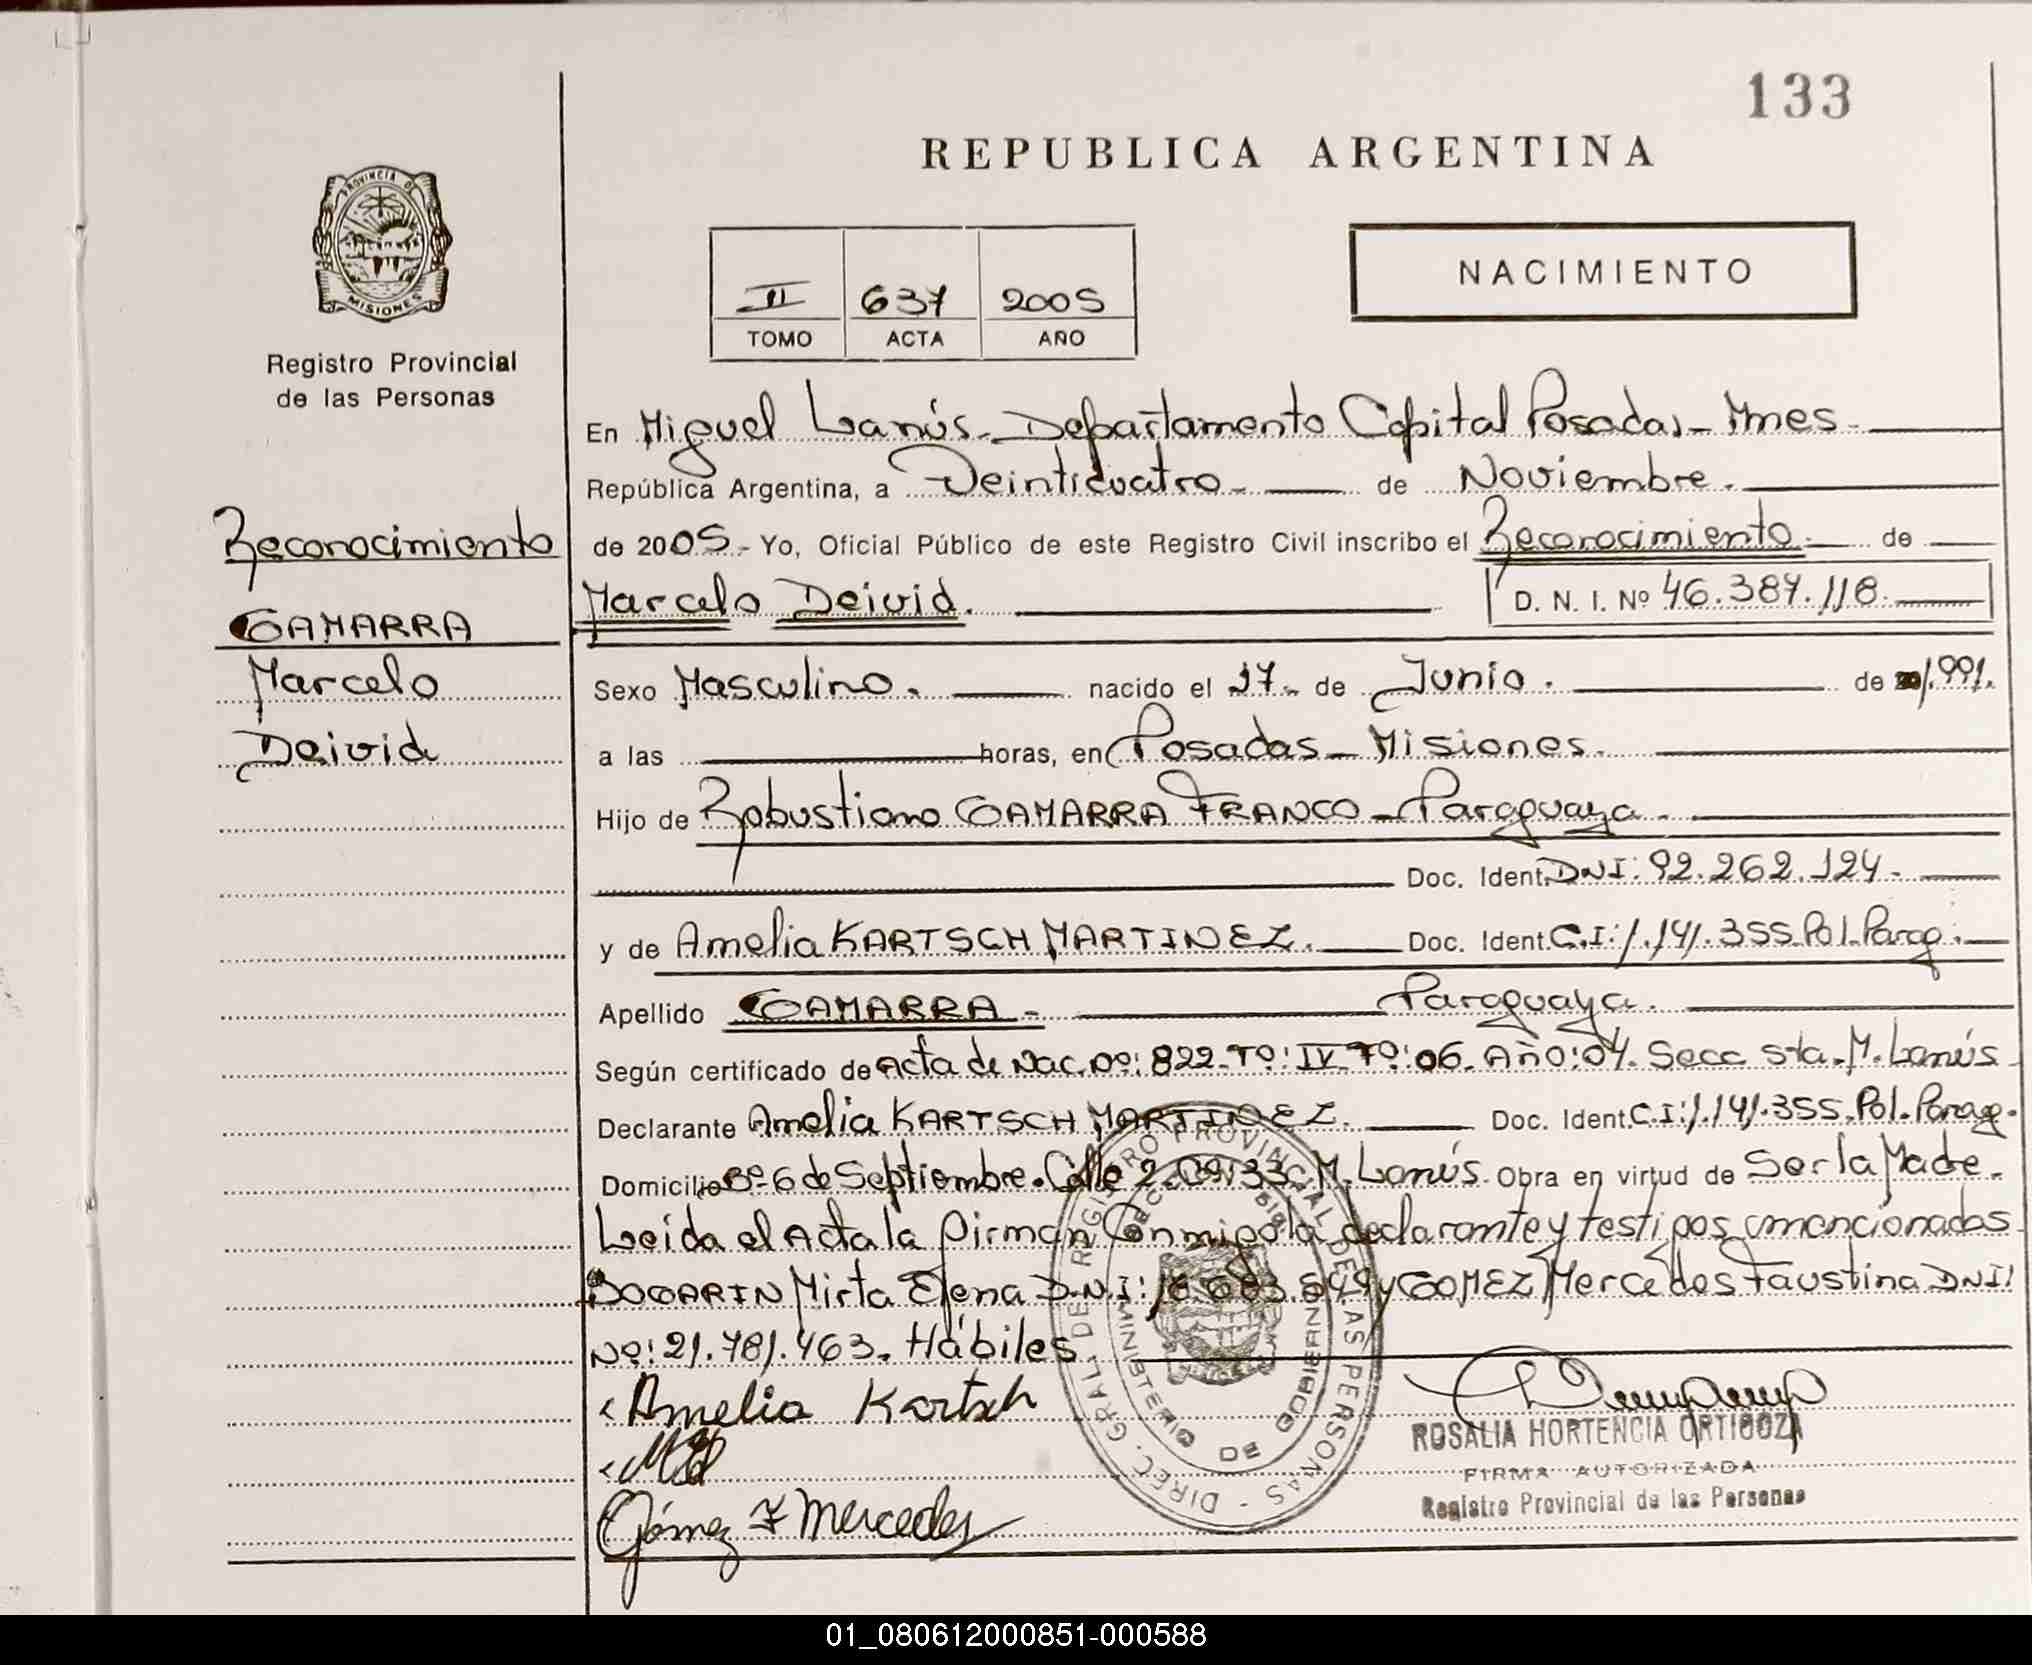 133
REPUBLICA ARGENTINA
PROVINCIA DE
MISIONES
Registro Provincial
de las Personas
II 637 2005
TOMO ACTA AÑO
NACIMIENTO
En Miguel Lanús - Departamento Capital Posadas - Mnes -
República Argentina, a Veinticuatro - de Noviembre.
de 2005 - Yo, Oficial Público de este Registro Civil inscribo el Reconocimiento de
Marcelo Deivid. D. N. I. Nº 46.387.118.
Reconocimiento
GAMARRA
Marcelo
Deivid
Sexo Masculino. nacido el 27 - de Junio. de 1.991.
a las horas, en Posadas - Misiones.
Hijo de Robustiano GAMARRA FRANCO - Paraguaya -
Doc. Ident. DNI: 92.262.124 -
y de Amelia KARTSCH MARTINEZ. Doc. Ident. C.I: 1.141.355. Pol. Parag.
Apellido GAMARRA - Paraguaya.
Según certificado de Acta de Nac. Nº: 822 - Tº: IV - Fº: 06 - Año: 04. Secc. 5ta. M. Lanús
Declarante Amelia KARTSCH MARTINEZ. Doc. Ident. C.I: 1.141.355. Pol. Parag.
Domicilio Bº 6 de Septiembre. Calle 2 M. Lanús. Obra en virtud de Ser la Madre.
Leída el Acta la firman Conmigo la declarante y testigos mencionados
Mirta Elena D.N.I: y GOMEZ Mercedes Faustina DNI:
Nº: 21.781.463. Hábiles
Amelia Kartsch
Gómez F Mercedes
DIREC. GRAL. DE REGISTRO PROVINCIAL DE LAS PERSONAS -
MINISTERIO DE GOBIERNO
ROSALIA HORTENCIA ORTIGOZA
FIRMA AUTORIZADA
Registro Provincial de las Personas
01_080612000851-000588